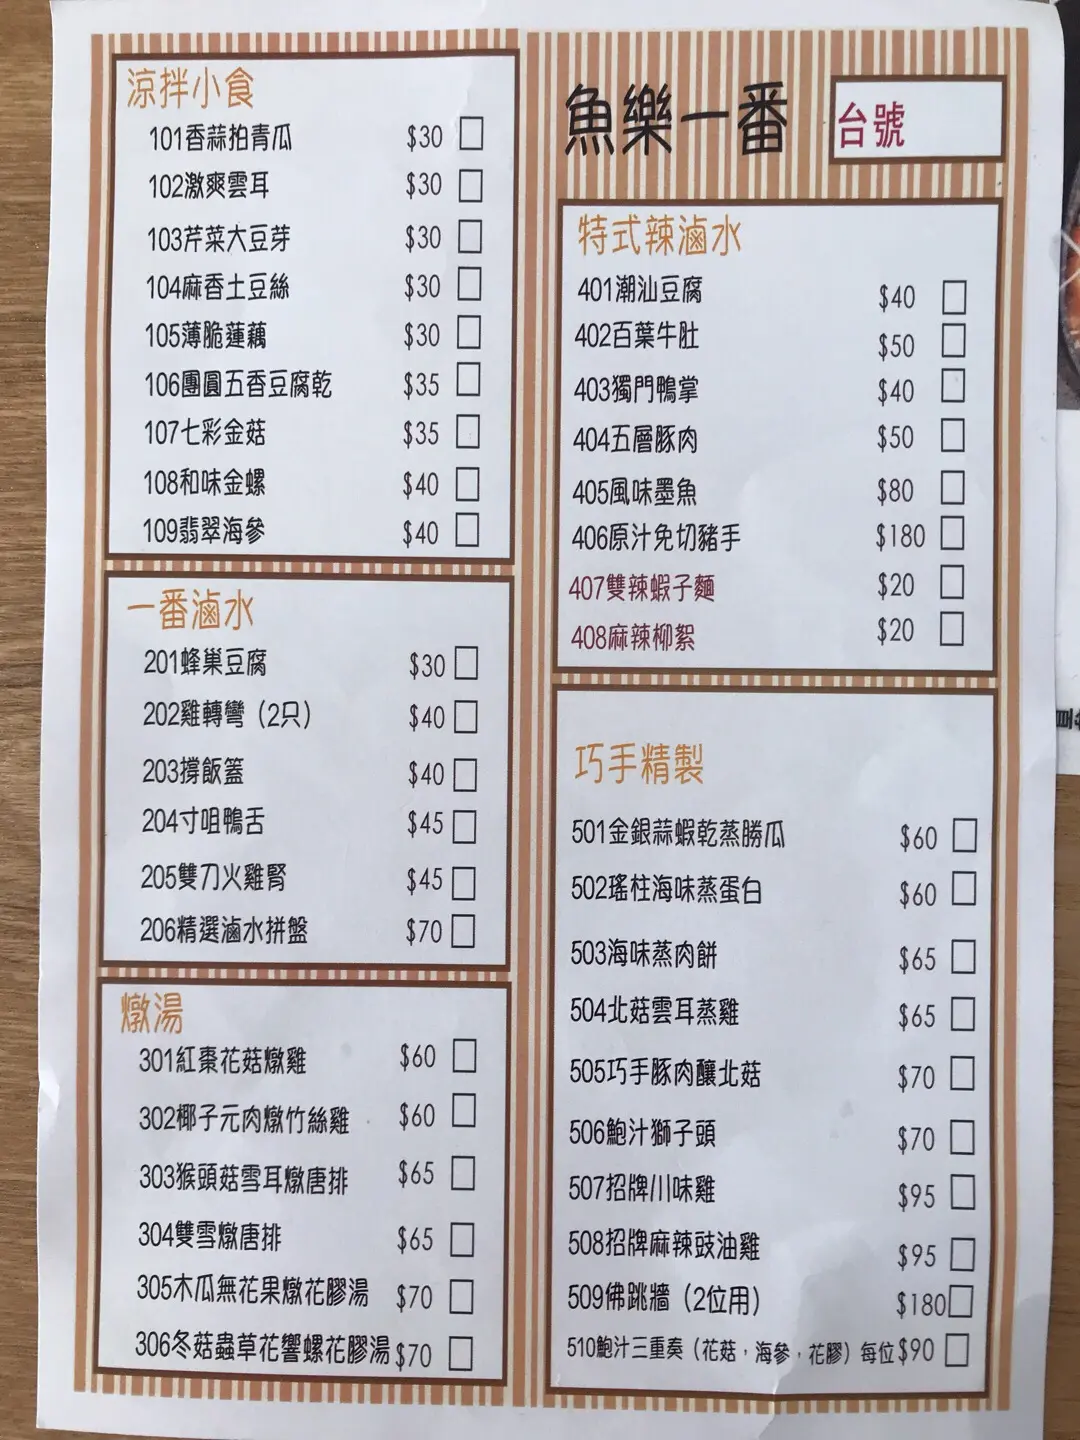 涼拌小食
101香蒜拍青瓜 $30
102激爽雲耳 $30
103芹菜大豆芽 $30
104麻香土豆絲 $30
105薄脆蓮藕 $30
106團圓五香豆腐乾 $35
107七彩金菇 $35
108和味金螺 $40
109翡翠海參 $40
一番滷水
201蜂巢豆腐 $30
202雞轉彎（2只） $40
203撐飯蓋 $40
204寸咀鴨舌 $45
205雙刀火雞腎 $45
206精選滷水拼盤 $70
燉湯
301紅棗花菇燉雞 $60
302椰子元肉燉竹絲雞 $60
303猴頭菇雪耳燉唐排 $65
304雙雪燉唐排 $65
305木瓜無花果燉花膠湯 $70
306冬菇蟲草花響螺花膠湯 $70
魚樂一番
台號
特式辣滷水
401潮汕豆腐 $40
402百葉牛肚 $50
403獨門鴨掌 $40
404五層豚肉 $50
405風味墨魚 $80
406原汁免切豬手 $180
407雙辣蝦子麵 $20
408麻辣柳絮 $20
巧手精製
501金銀蒜蝦乾蒸勝瓜 $60
502瑤柱海味蒸蛋白 $60
503海味蒸肉餅 $65
504北菇雲耳蒸雞 $65
505巧手豚肉釀北菇 $70
506鮑汁獅子頭 $70
507招牌川味雞 $95
508招牌麻辣豉油雞 $95
509佛跳牆（2位用） $180
510鮑汁三重奏（花菇，海參，花膠）每位 $90